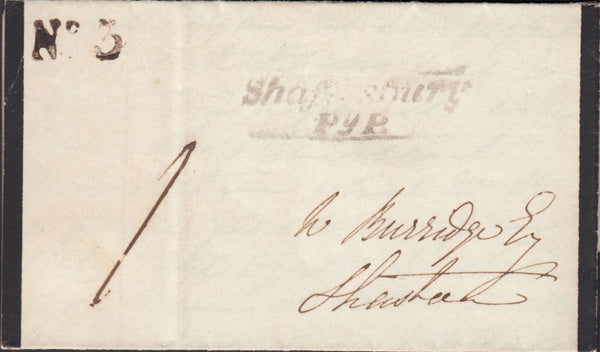 No. 3
Shaftesbury
Py P.
1
W Burridge Esq
Shaston